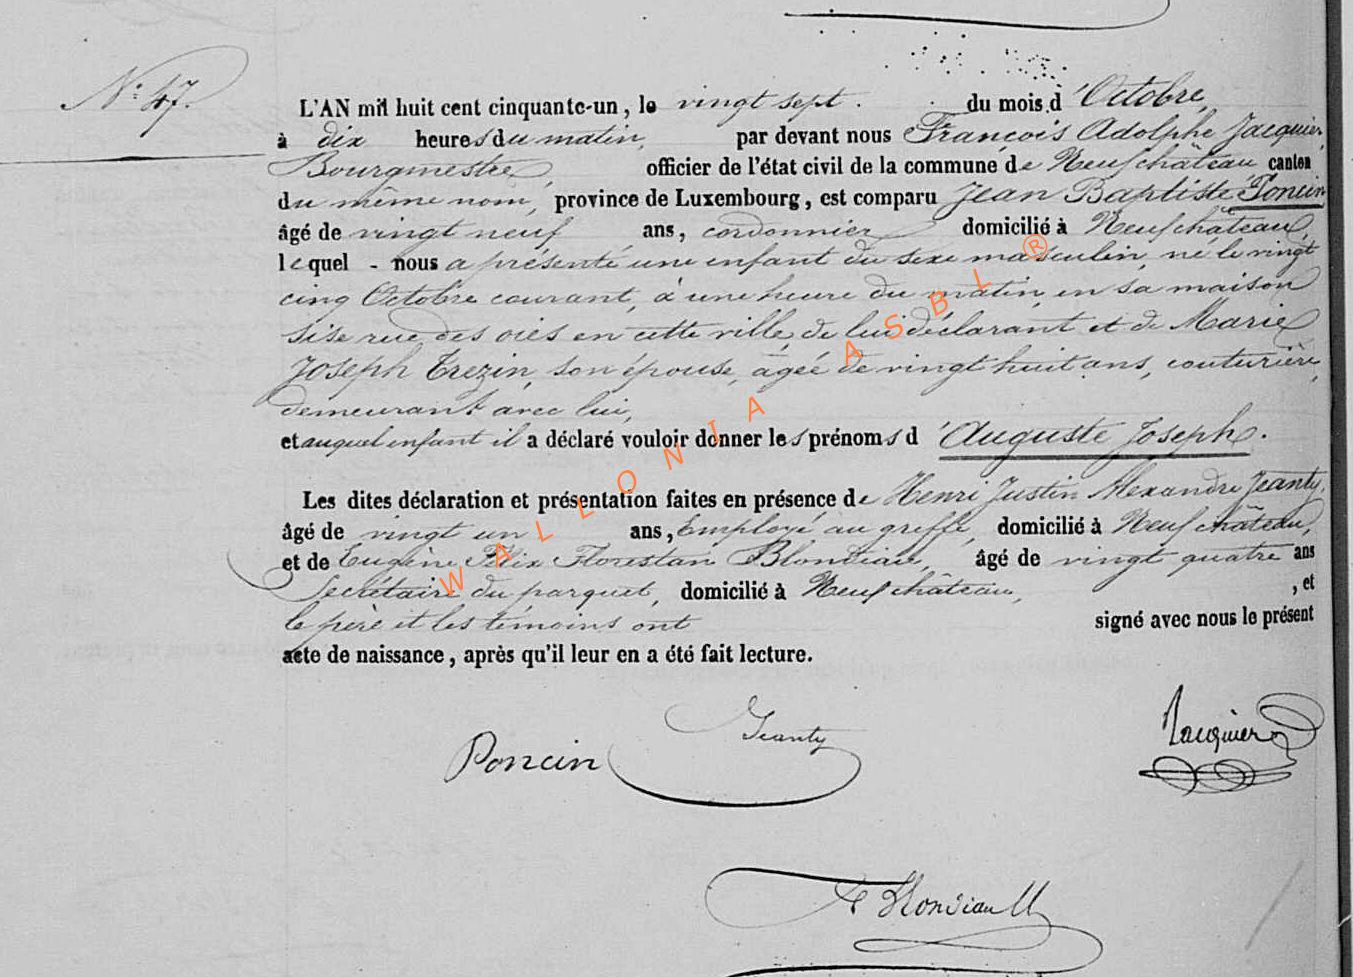 N° 47.
L'AN mil huit cent cinquante-un, le vingt sept. du mois d'Octobre,
à dix heures du matin, par devant nous François Adolphe Jacquier,
Bourgmestre, officier de l'état civil de la commune de Neufchâteau, canton
du même nom, province de Luxembourg, est comparu Jean Baptiste Poncin
âgé de vingt neuf ans, cordonnier domicilié à Neufchâteau,
lequel - nous a présenté une enfant du sexe masculin, né le vingt
cinq Octobre courant, à une heure du matin, en sa maison
sise rue des oies en cette ville, de lui déclarant et de Marie
Joseph Trezin, son épouse, agée de vingt huit ans, couturière,
demeurant avec lui,
et auquel enfant il a déclaré vouloir donner les prénoms d'Auguste Joseph.
Les dites déclaration et présentation faites en présence de Henri Justin Alexandre Jeanty,
âgé de vingt un ans, Employé au greffe, domicilié à Neufchâteau,
et de Eugène Félix Florestan Blondiau, âgé de vingt quatre ans
Secrétaire du parquet, domicilié à Neufchâteau, , et
le père et les témoins ont signé avec nous le présent
acte de naissance, après qu'il leur en a été fait lecture.
WALLONIA ASBL ®
Jeanty
Jacquier
Poncin
F Blondiau